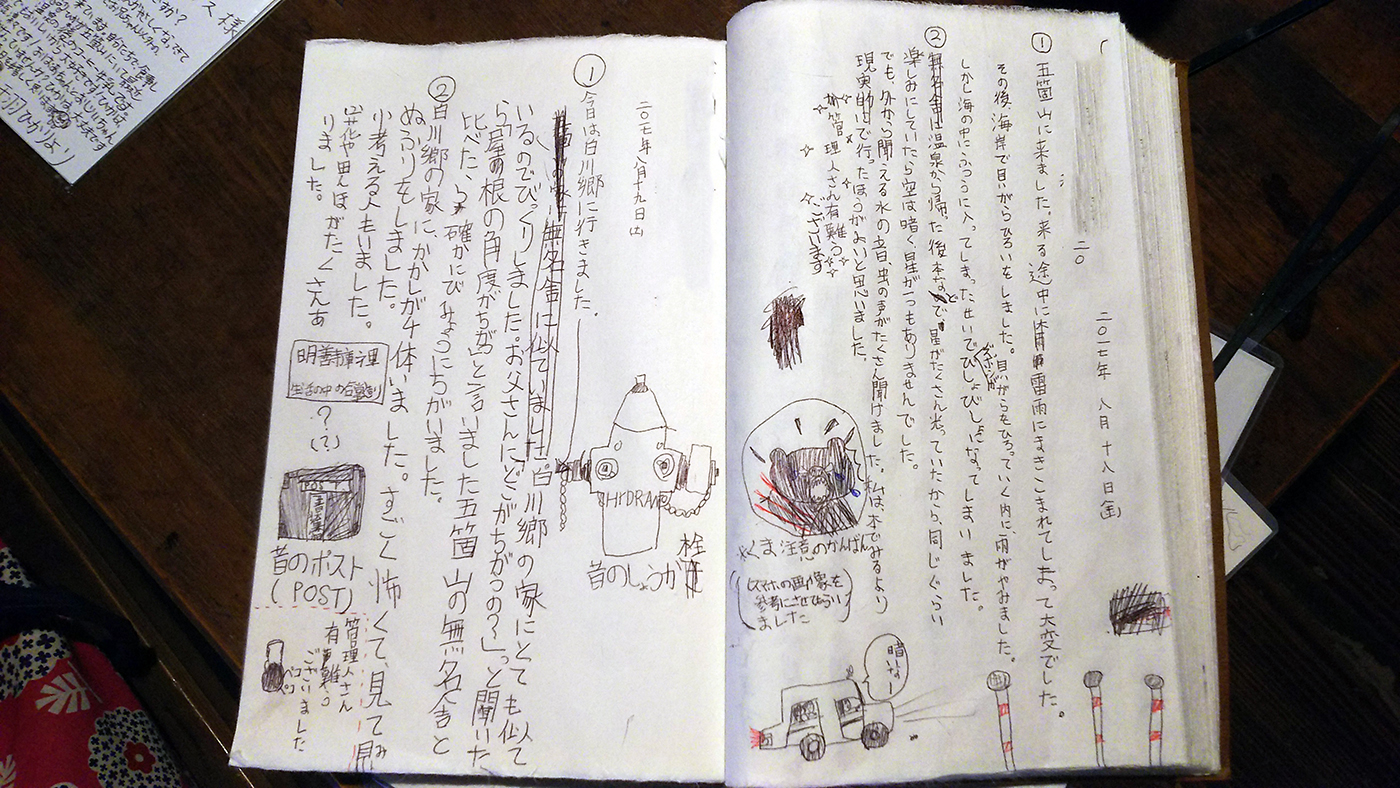 二〇一七年 八月十八日(金)
二〇
① 五箇山に来ました。来る途中に雷雨にまきこまれてしまって大変でした。
その後、海岸で貝がらひろいをしました。貝がらをひろっていく内に、雨がやみました。
しかし海の中にふつうに入ってしまったせいでズボンがびしょびしょになってしまいました。
② 無名舎は温泉から帰った後本などで、星がたくさん光っていたから、同じぐらい
楽しみにしていたら空は暗く、星が一つもありませんでした。
でも、外から聞える水の音、虫の声がたくさん聞けました。私は、本でみるより
現実的で行ったほうがよいと思いました。
管理人さん有難う
ございます
※くま注意のかんばん
(スマホの画像を
参考にさせてもらい
ました)
暗いなー
二〇一七年八月十九日(土)
① 今日は白川郷に行きました。
無名舎に似ていました。白川郷の家にとても似て
いるのでびっくりしました。お父さんに「どこがちがうの?」っと聞いた
ら「屋根の角度がちがう」と言いました五箇山の無名舎と
比べたら確かにびみょうにちがいました。
② 白川郷の家に、かかしが4体いました。すごく怖くて、見てみ
ぬふりをしました。
小考える人もいました。
花や田んぼがたくさんあ
りました。
HYDRANT
昔のしょうか栓
明善寺庫裡
生活の中の合掌造り
?
(?)
昔のポスト
(POST)
管理人さん
有難う
ございました
ペコ
ペコ
様
ひかりより